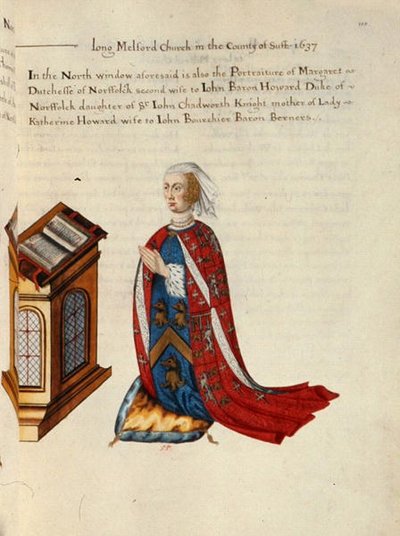 Long Melford Church in the County of Suff: 1637
In the North window aforesaid is also the Portraiture of Margaret
Dutchesse of Norffolck second wife to Iohn Baron Howard Duke of
Norffolck daughter of Sr Iohn Chadworth Knight mother of Lady
Katherine Howard wife to Iohn Bourchier Baron Berners.